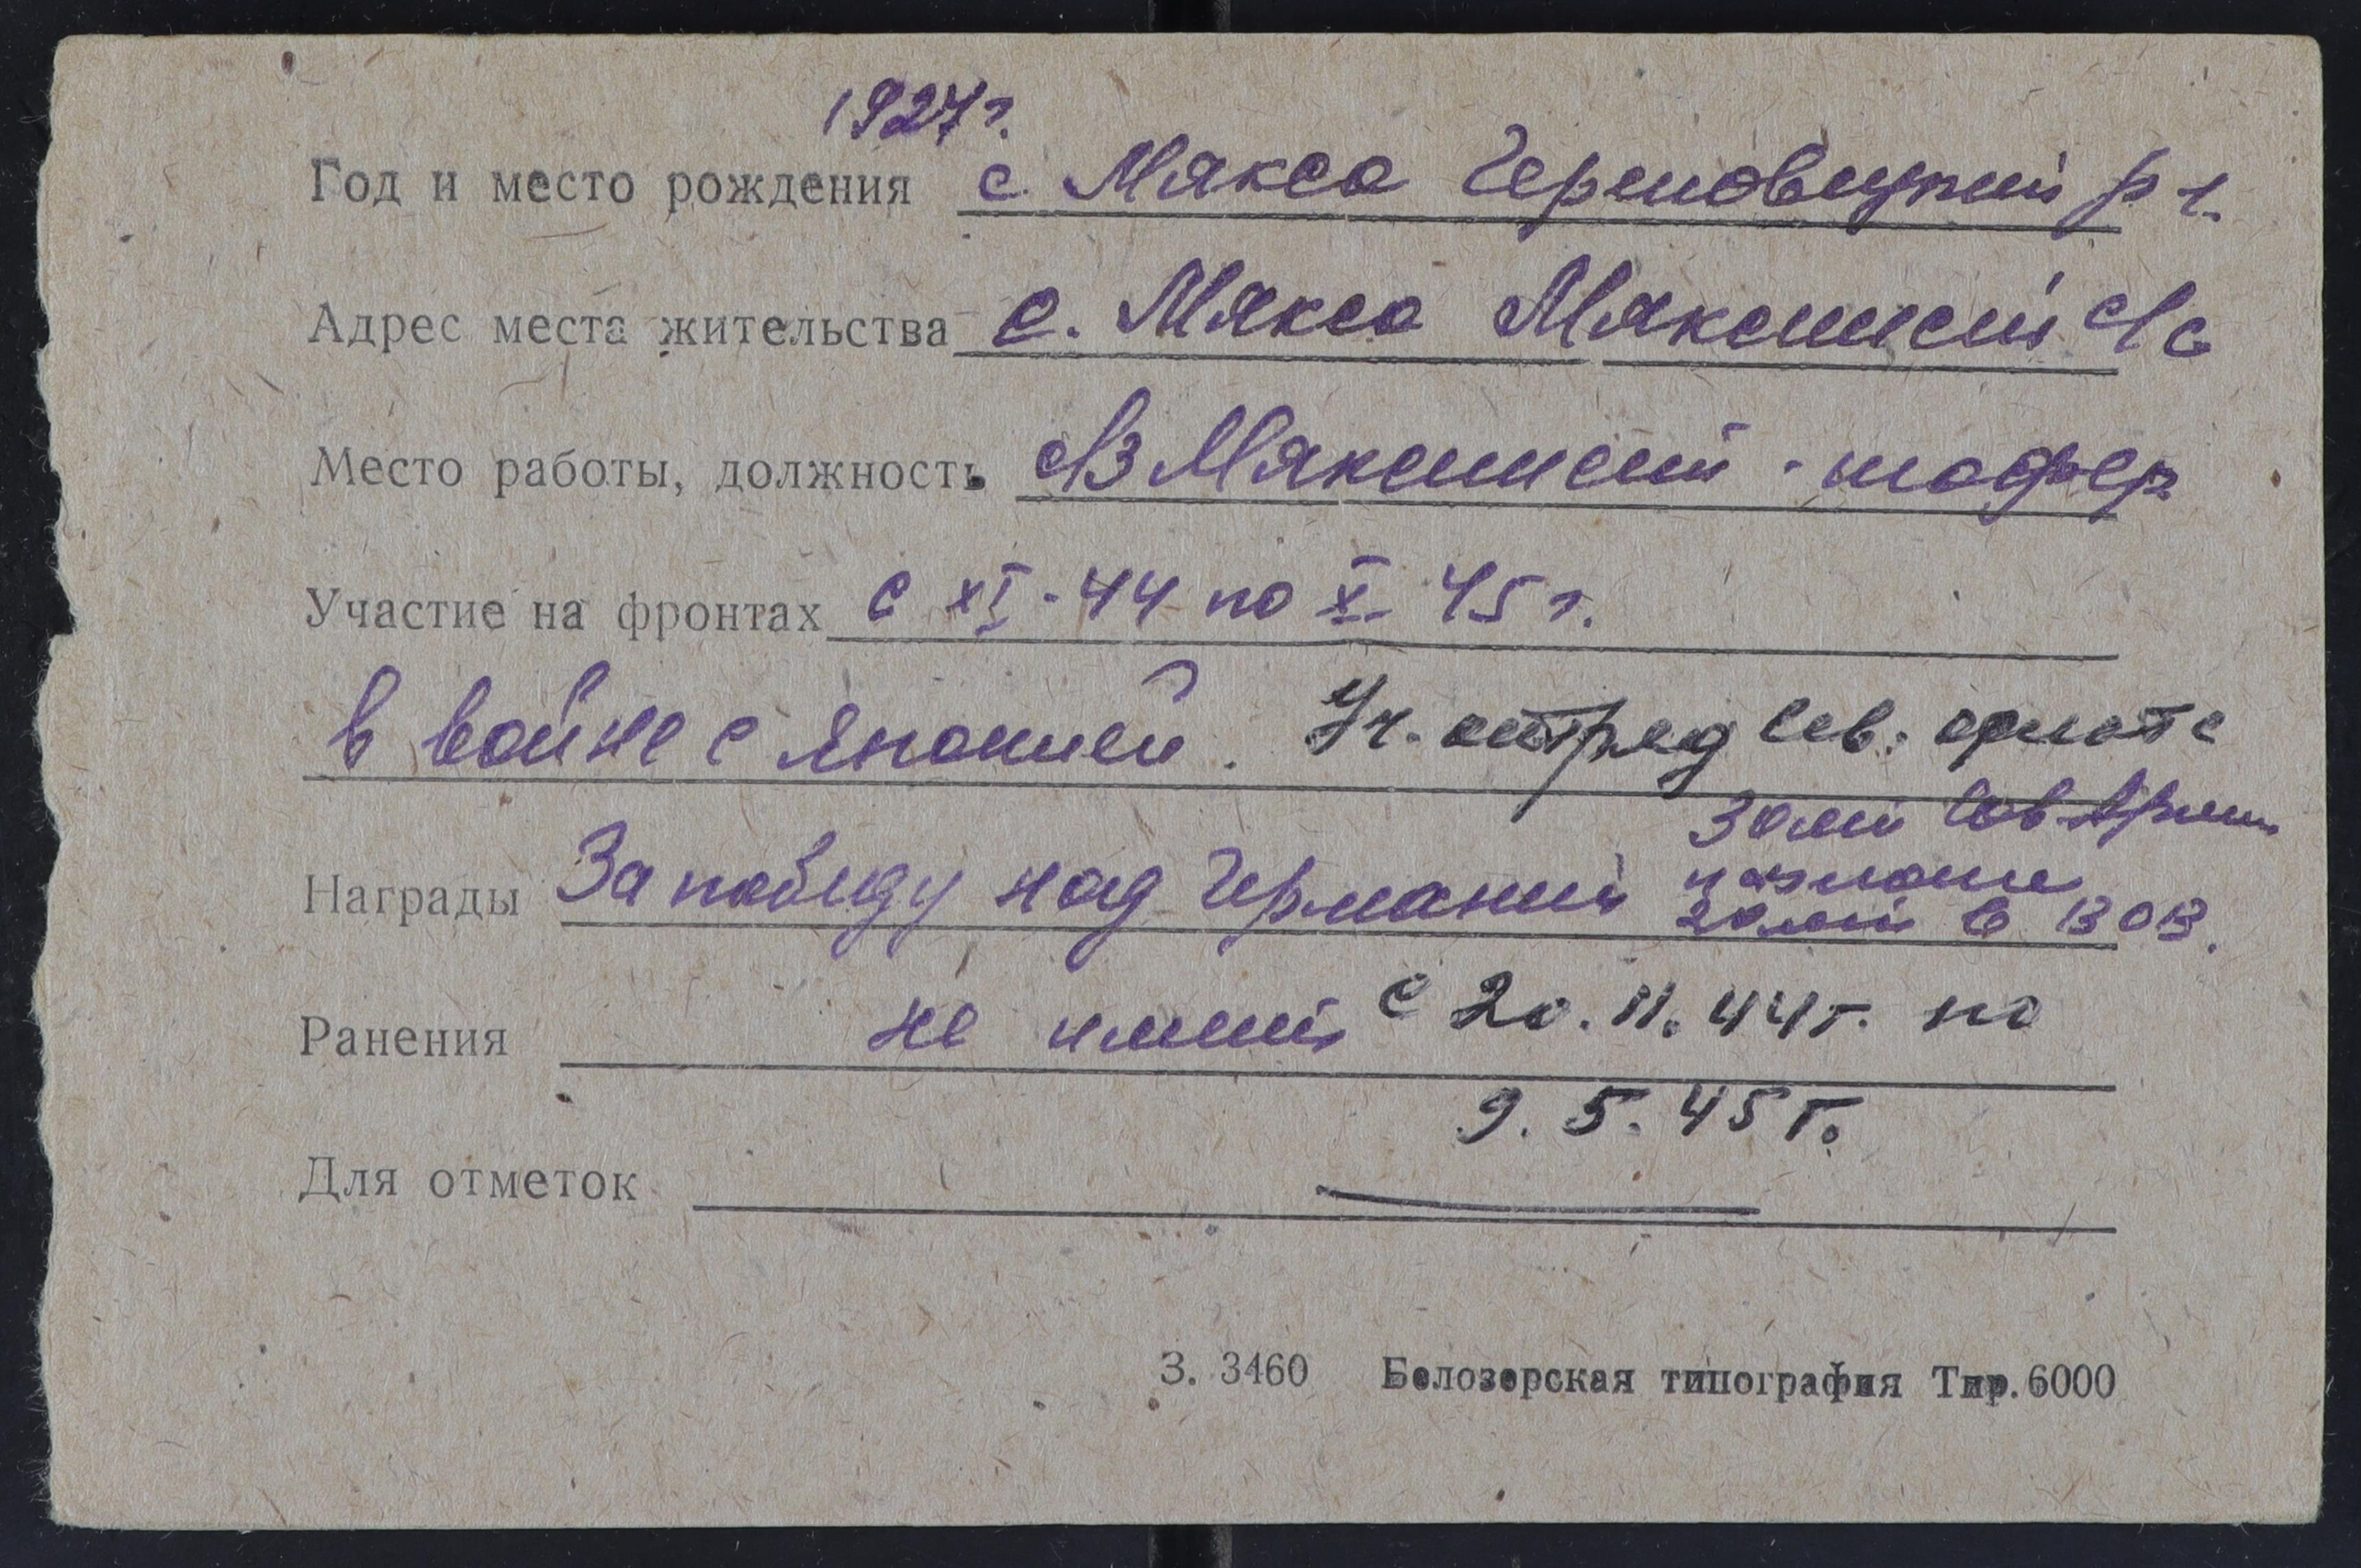 1927 г.
Год и место рождения с. Мякса Череповецкий р-н.
Адрес места жительства с. Мякса Мяксинский с/с
Место работы, должность ЛЗ Мяксинский - шофер
Участие на фронтах с XI-44 по X 45 г.
в войне с Японией. Уч. отряд Сев. флота
30 лет Сов Армии
Награды За победу над Германией 20 лет в ВОВ.
Ранения не имеет с 20.11.44 г. по
9.5.45 г.
Для отметок
З. 3460 Белозерская типография Тир. 6000